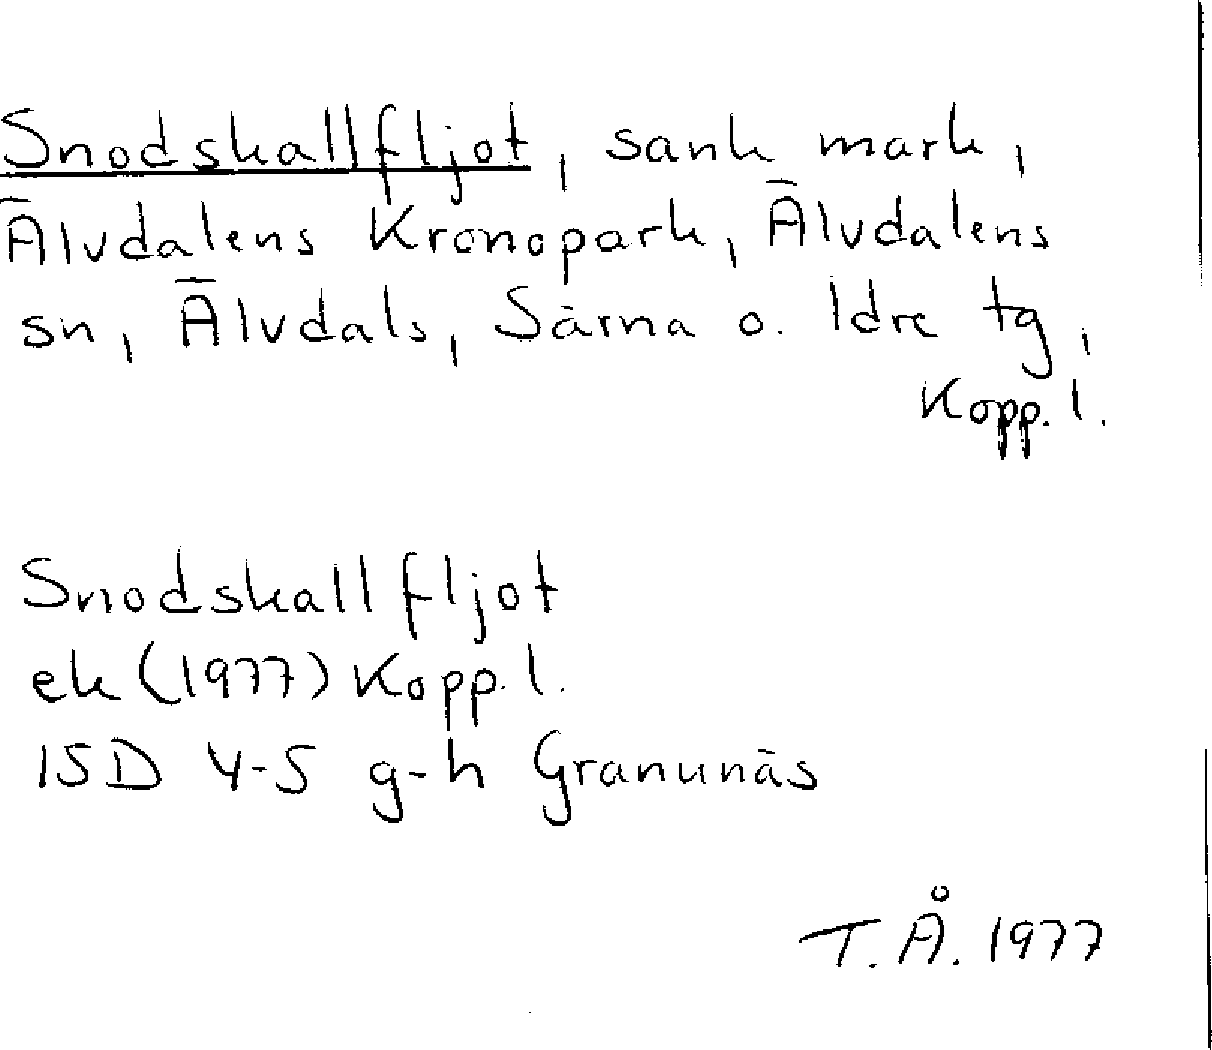 Snodskallfljot, sank mark,
Älvdalens Kronopark, Älvdalens
sn, Älvdals, Särna o. Idre tg,
Kopp. l.
Snodskallfljot
ek (1977) Kopp. l.
15D 4-5 g-h Granunäs
T. Å. 1977